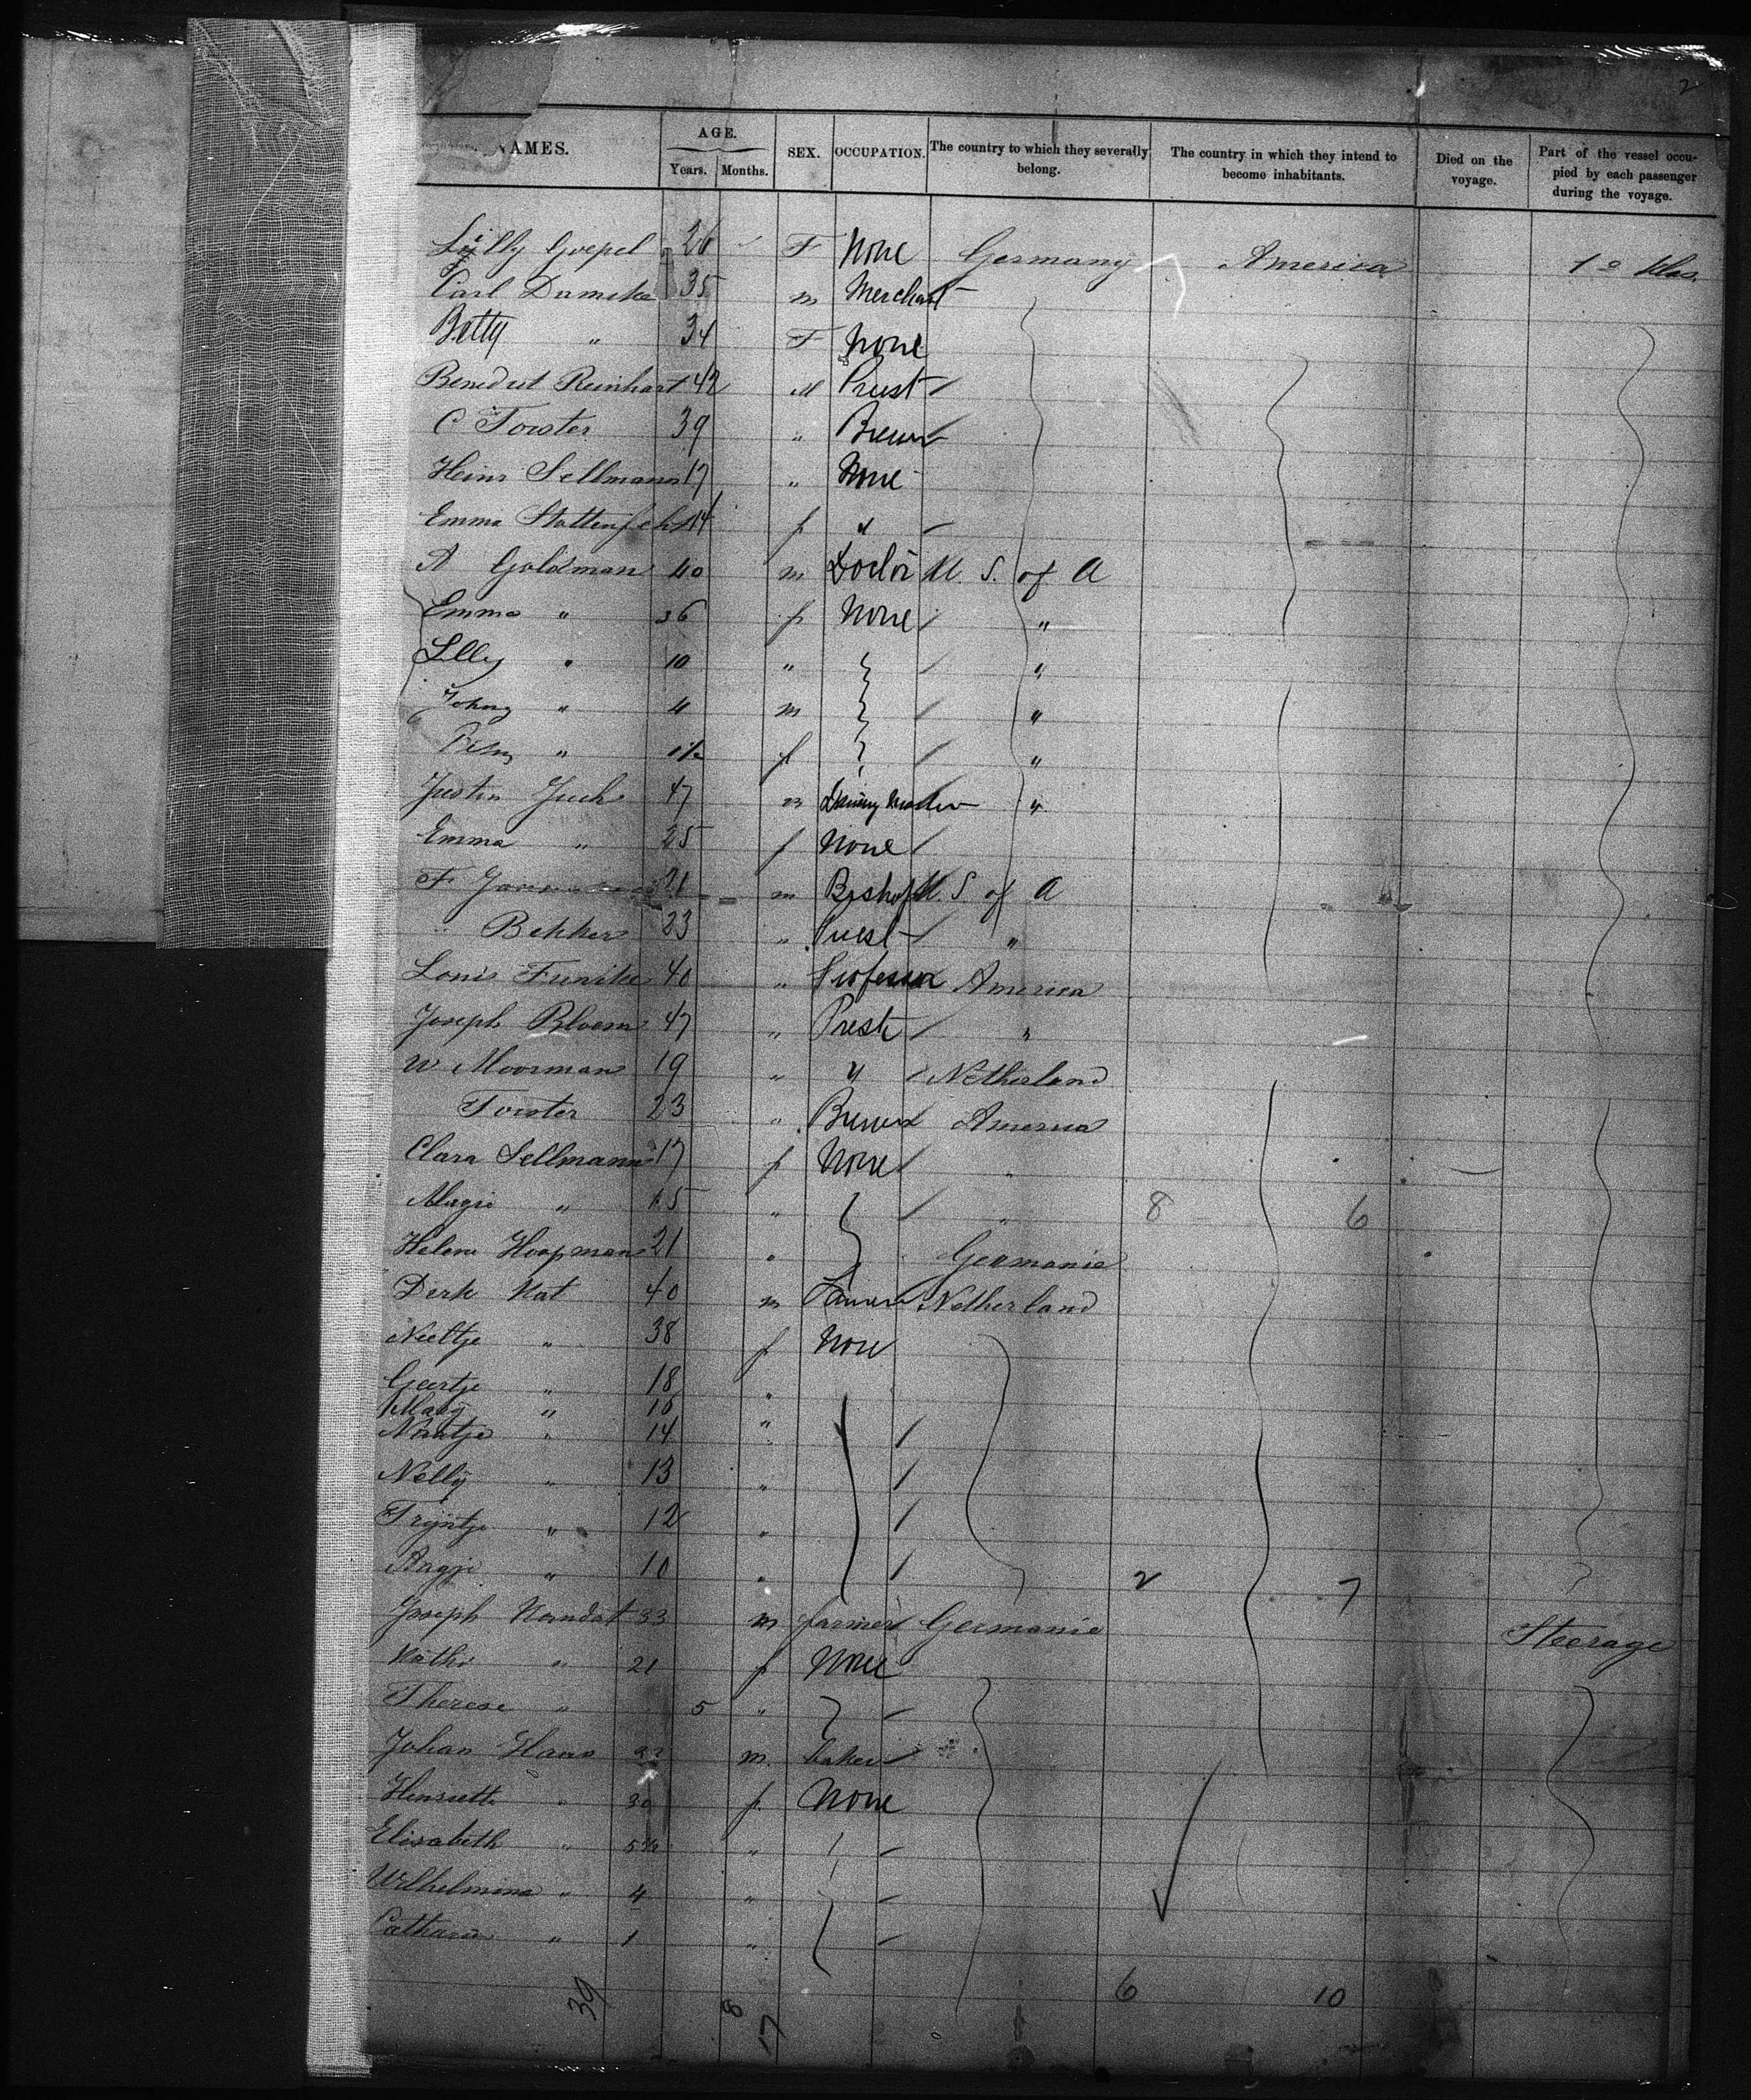 2
NAMES. AGE. Years. Months. SEX. OCCUPATION. The country to which they severally belong. The country in which they intend to become inhabitants. Died on the voyage. Part of the vessel occupied by each passenger during the voyage.
Lilly Goepel 26 F None Germany America 1e Klas.
Carl Dumcke 35 m Merchant
Betty " 34 F None
Benedict Reinhart 42 M Priest
C Forster 39 " Brewer
Heinr Sellmann 17 " None
Emma 14 f "
A Goldman 40 m Doctor U. S. of A
Emma " 36 f None "
Lilly " 10 " "
Johny " 4 m "
" 1½ f "
Justin Juch 47 m "
Emma " 25 f None
F 21 m Bishop U. S. of A
" Bekker 23 " Priest "
Louis Funike 40 " Professor America
Joseph Bloem 47 " Prest "
W Moorman 19 " " Netherland
Forster 23 " Brewer America
Clara Sellmann 17 f None "
Magie " 15 " " 8 6
Helene Hoopman 21 " Germanie
Derk Kat 40 m Farmer Netherland
Neeltje " 38 f None
Geertje " 18 "
Mary " 16 "
Naatje " 14 "
Nelly " 13 "
Trijntje " 12 "
Aagje " 10 " 2 7
Joseph Kandst 33 m farmer Germanie Steerage
Kathi " 21 f None
Therese " 5 "
Johan Haas m. baker
Henriette " 30 f. None
Elisabeth " 5½ "
Wilhelmina " 4 "
Catharin " 1 "
39 8 17 6 10